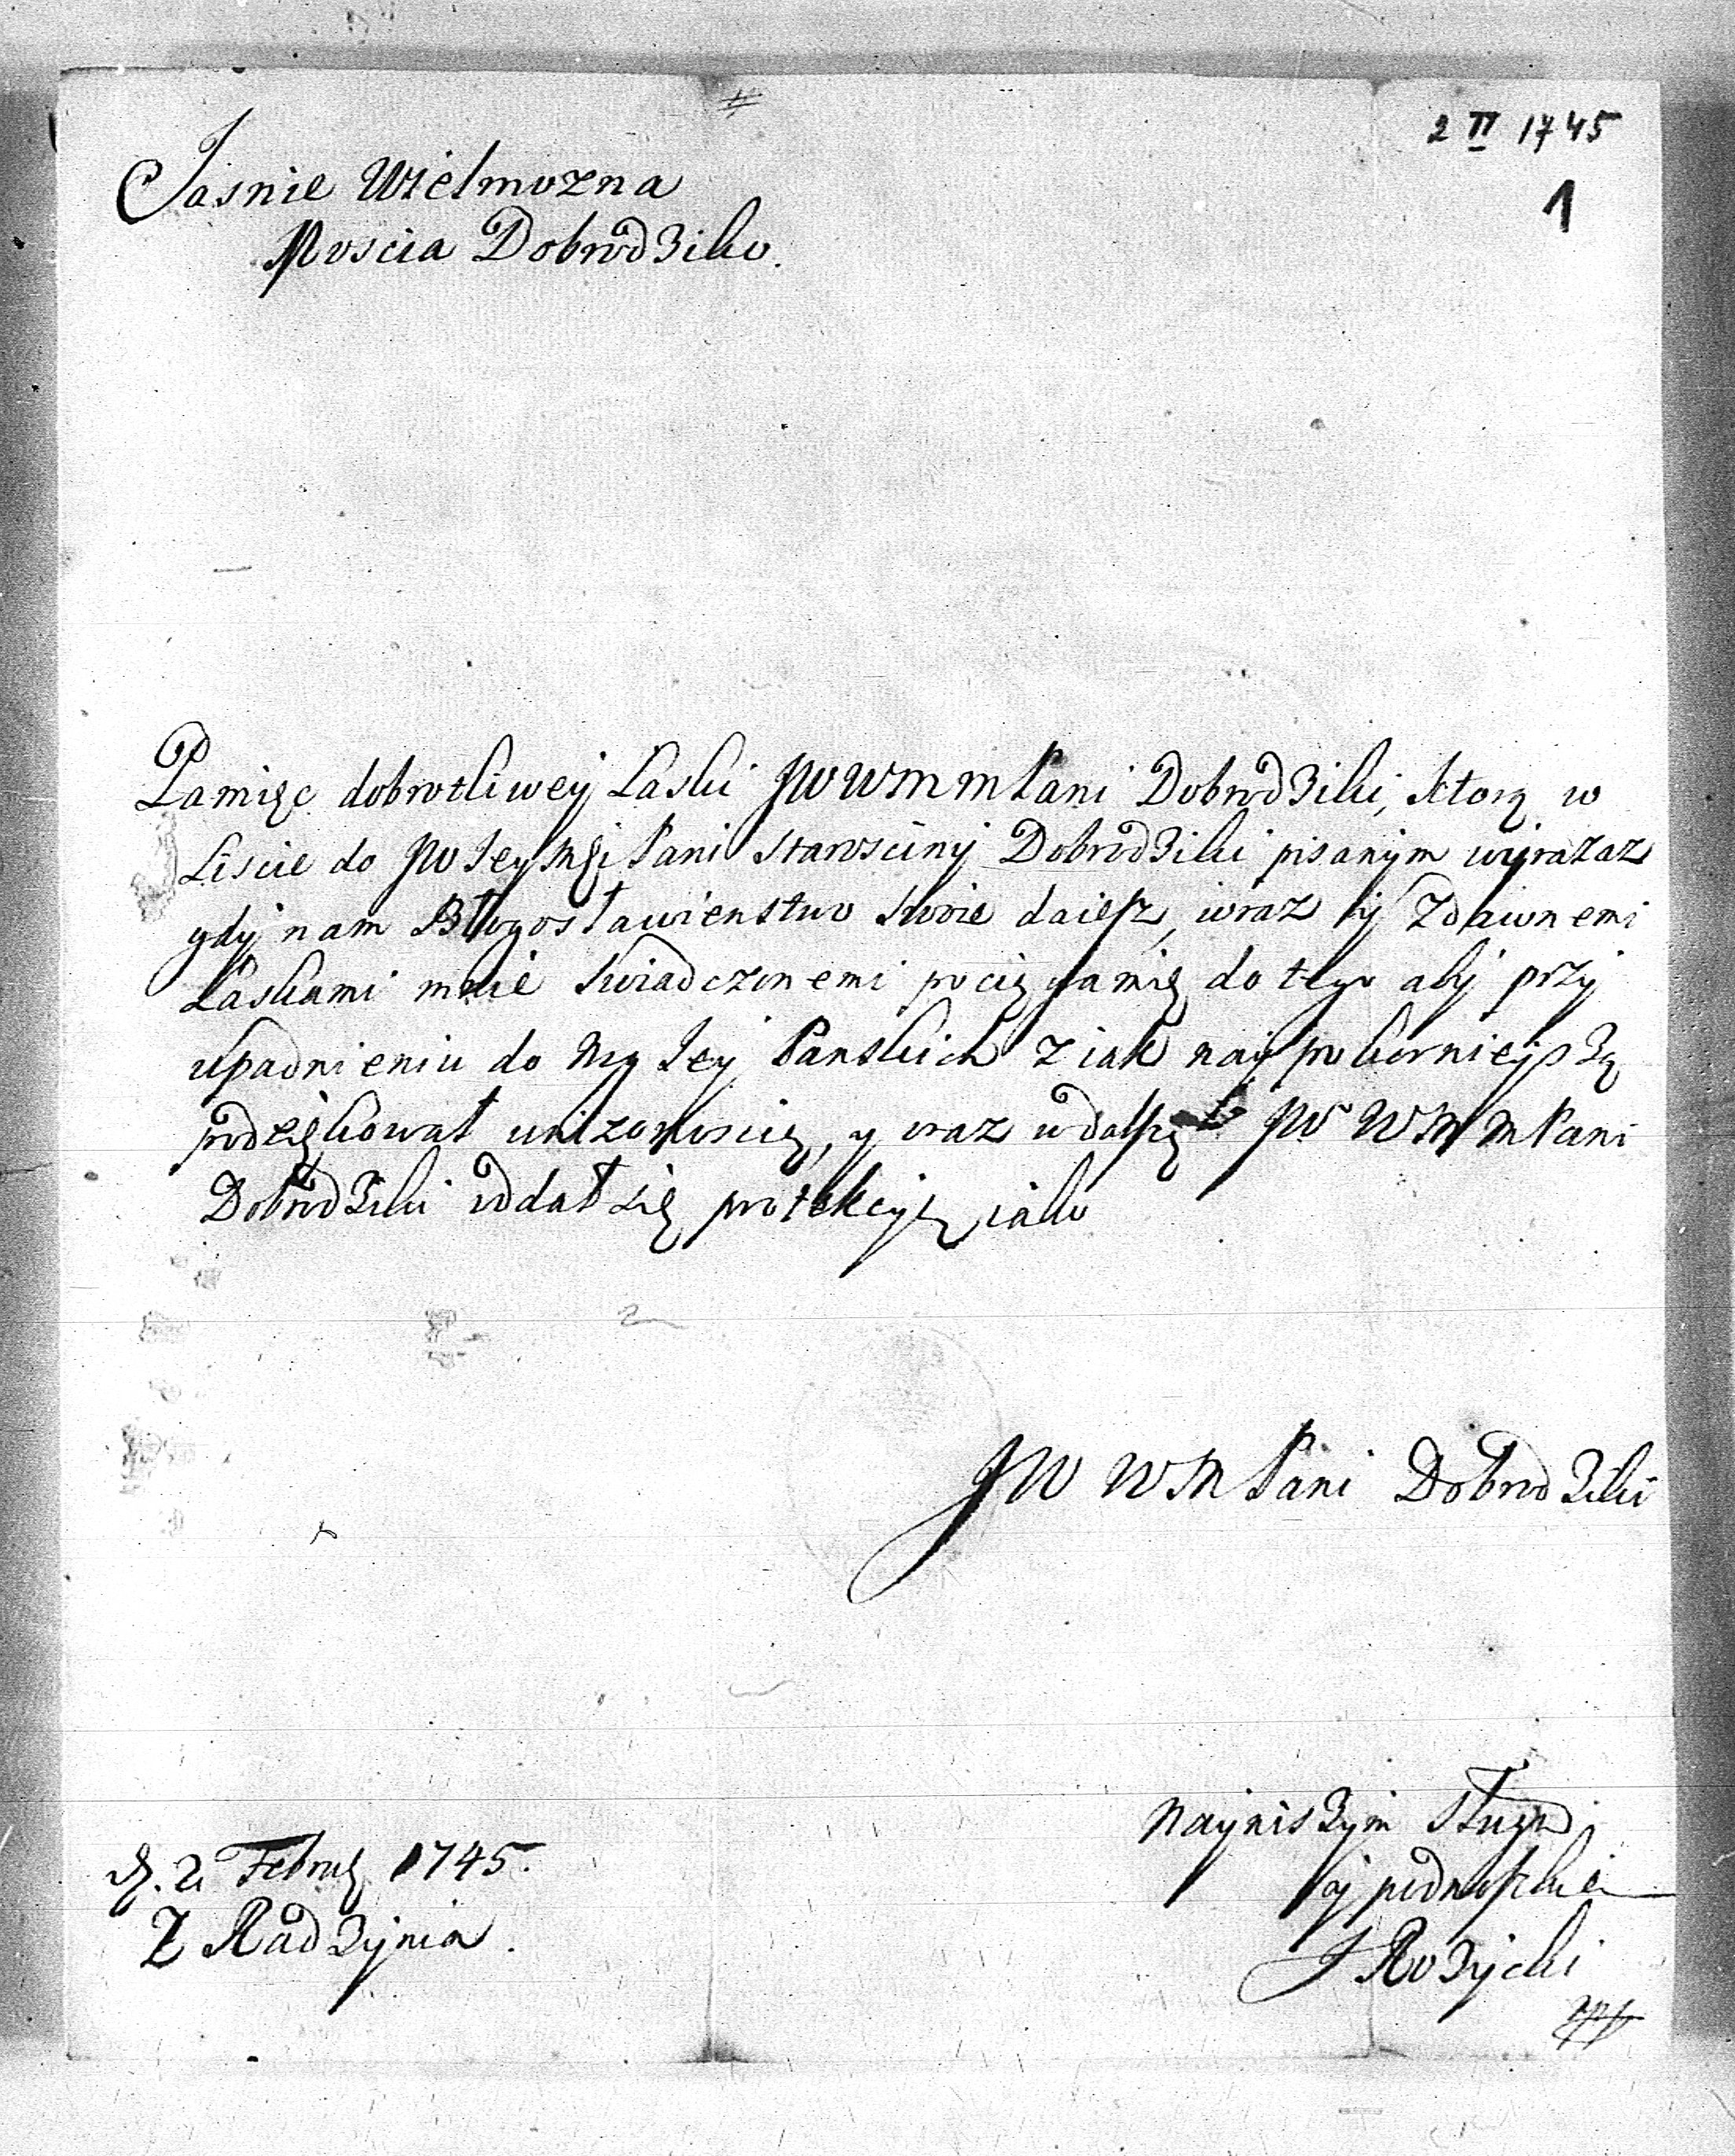 2 II 1745
1
Jasnie Wielmozna
Moscia Dobrodziko.
Pamięc dobrotliwey Łaski JWWMMPani Dobrodziki, ktorą w
Liscie do JW Jeymści Pani Starosciny Dobrodziki pisanym wyrazaz
gdy nam Błogosławienstwo swoie daiesz, wraz y Zdawnemi
Łaskami mnie swiadczonemi pociąga mię do tego aby przy
upadnieniu do Nog Jey Panskich z iak naypokornieyszą
podziękował unizonoscią, y wraz JW WMMPani
Dobrodziki oddał się protekcyą iako
JW WMPani Dobrodziki
Nayniszym sługą
y podnoszkie
J Rozycki
D. 2 Febru 1745.
Z Radzynia.